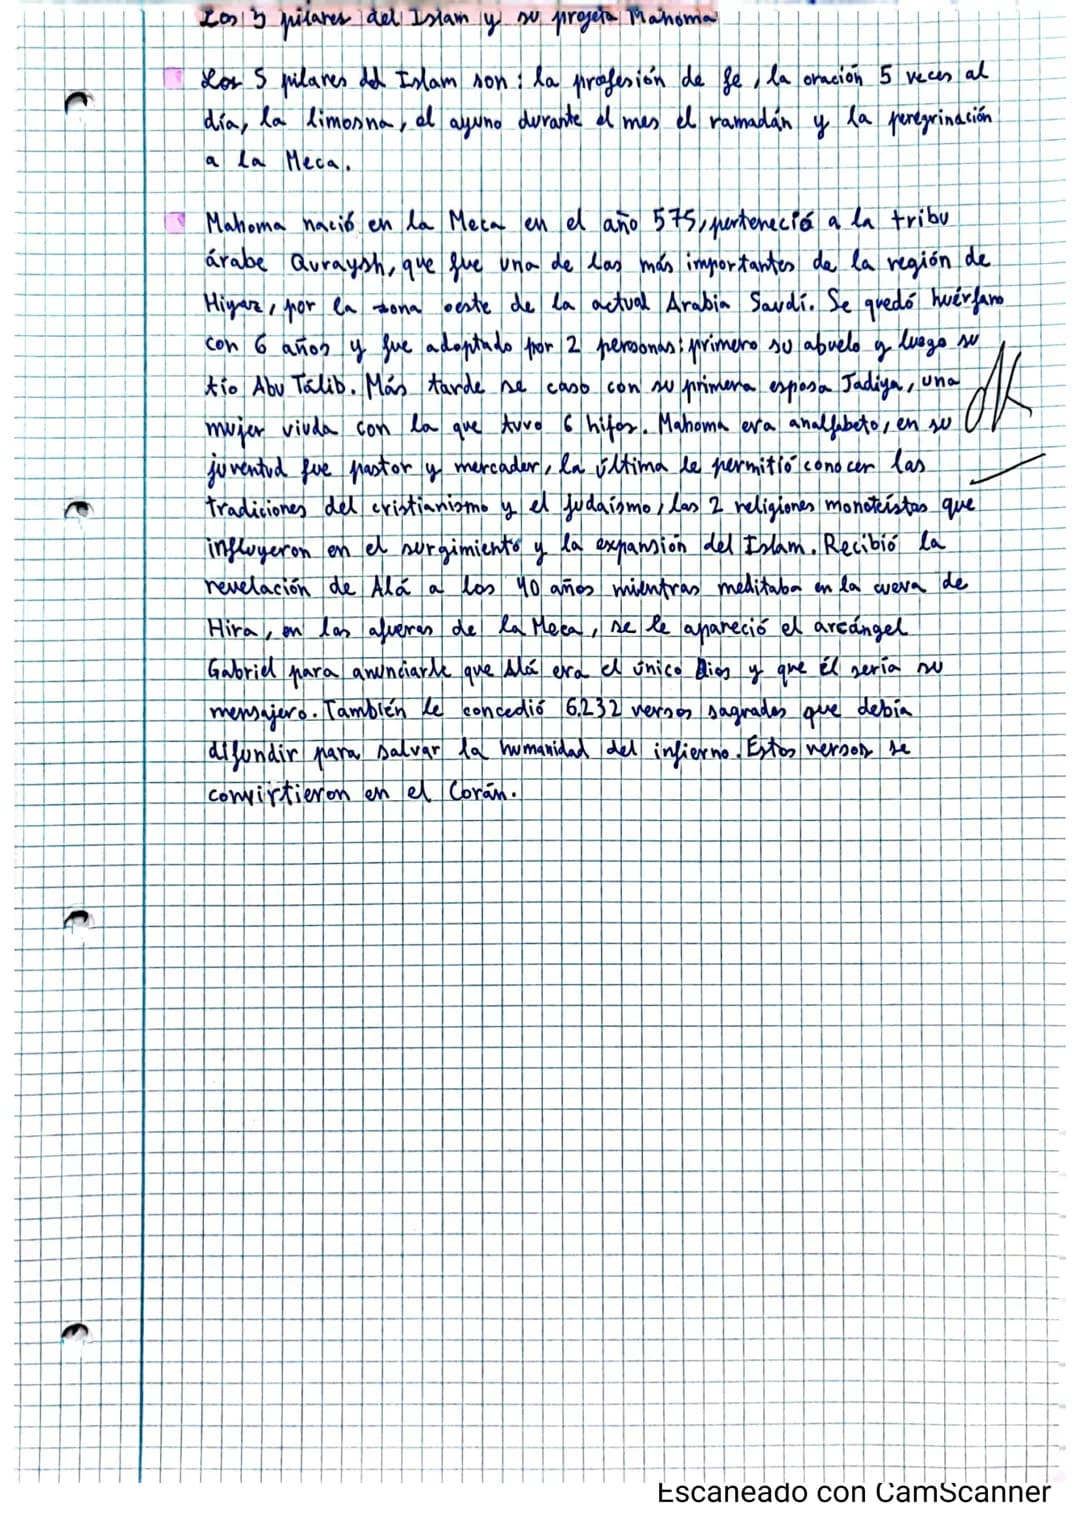 Los 5 pilares del Islam y su profeta Mahoma
Los 5 pilares del Islam son: la profesión de fe, la oración 5 veces al
día, la limosna, el ayuno durante el mes el ramadán y la peregrinación
a la Meca.
Mahoma nació en la Meca en el año 575, perteneció a la tribu
árabe Quraysh, que fue una de las más importantes de la región de
Hiyaz, por la zona oeste de la actual Arabia Saudí. Se quedó huérfano
con 6 años y fue adoptado por 2 personas: primero su abuelo y luego su
tío Abu Talib. Más tarde se caso con su primera esposa Jadiya, una
mujer viuda con la que tuvo 6 hijos. Mahoma era analfabeto, en su
juventud fue pastor y mercader, la última le permitió conocer las
tradiciones del cristianismo y el judaísmo, las 2 religiones monoteístas que
influyeron en el surgimiento y la expansión del Islam. Recibió la
revelación de Alá a los 40 años mientras meditaba en la cueva de
Hira, en las afueras de la Meca, se le apareció el arcángel
Gabriel para anunciarle que Alá era el único Dios y que él sería su
mensajero. También le concedió 6.232 versos sagrados que debía
difundir para salvar la humanidad del infierno. Estos versos se
convirtieron en el Corán.
Escaneado con CamScanner